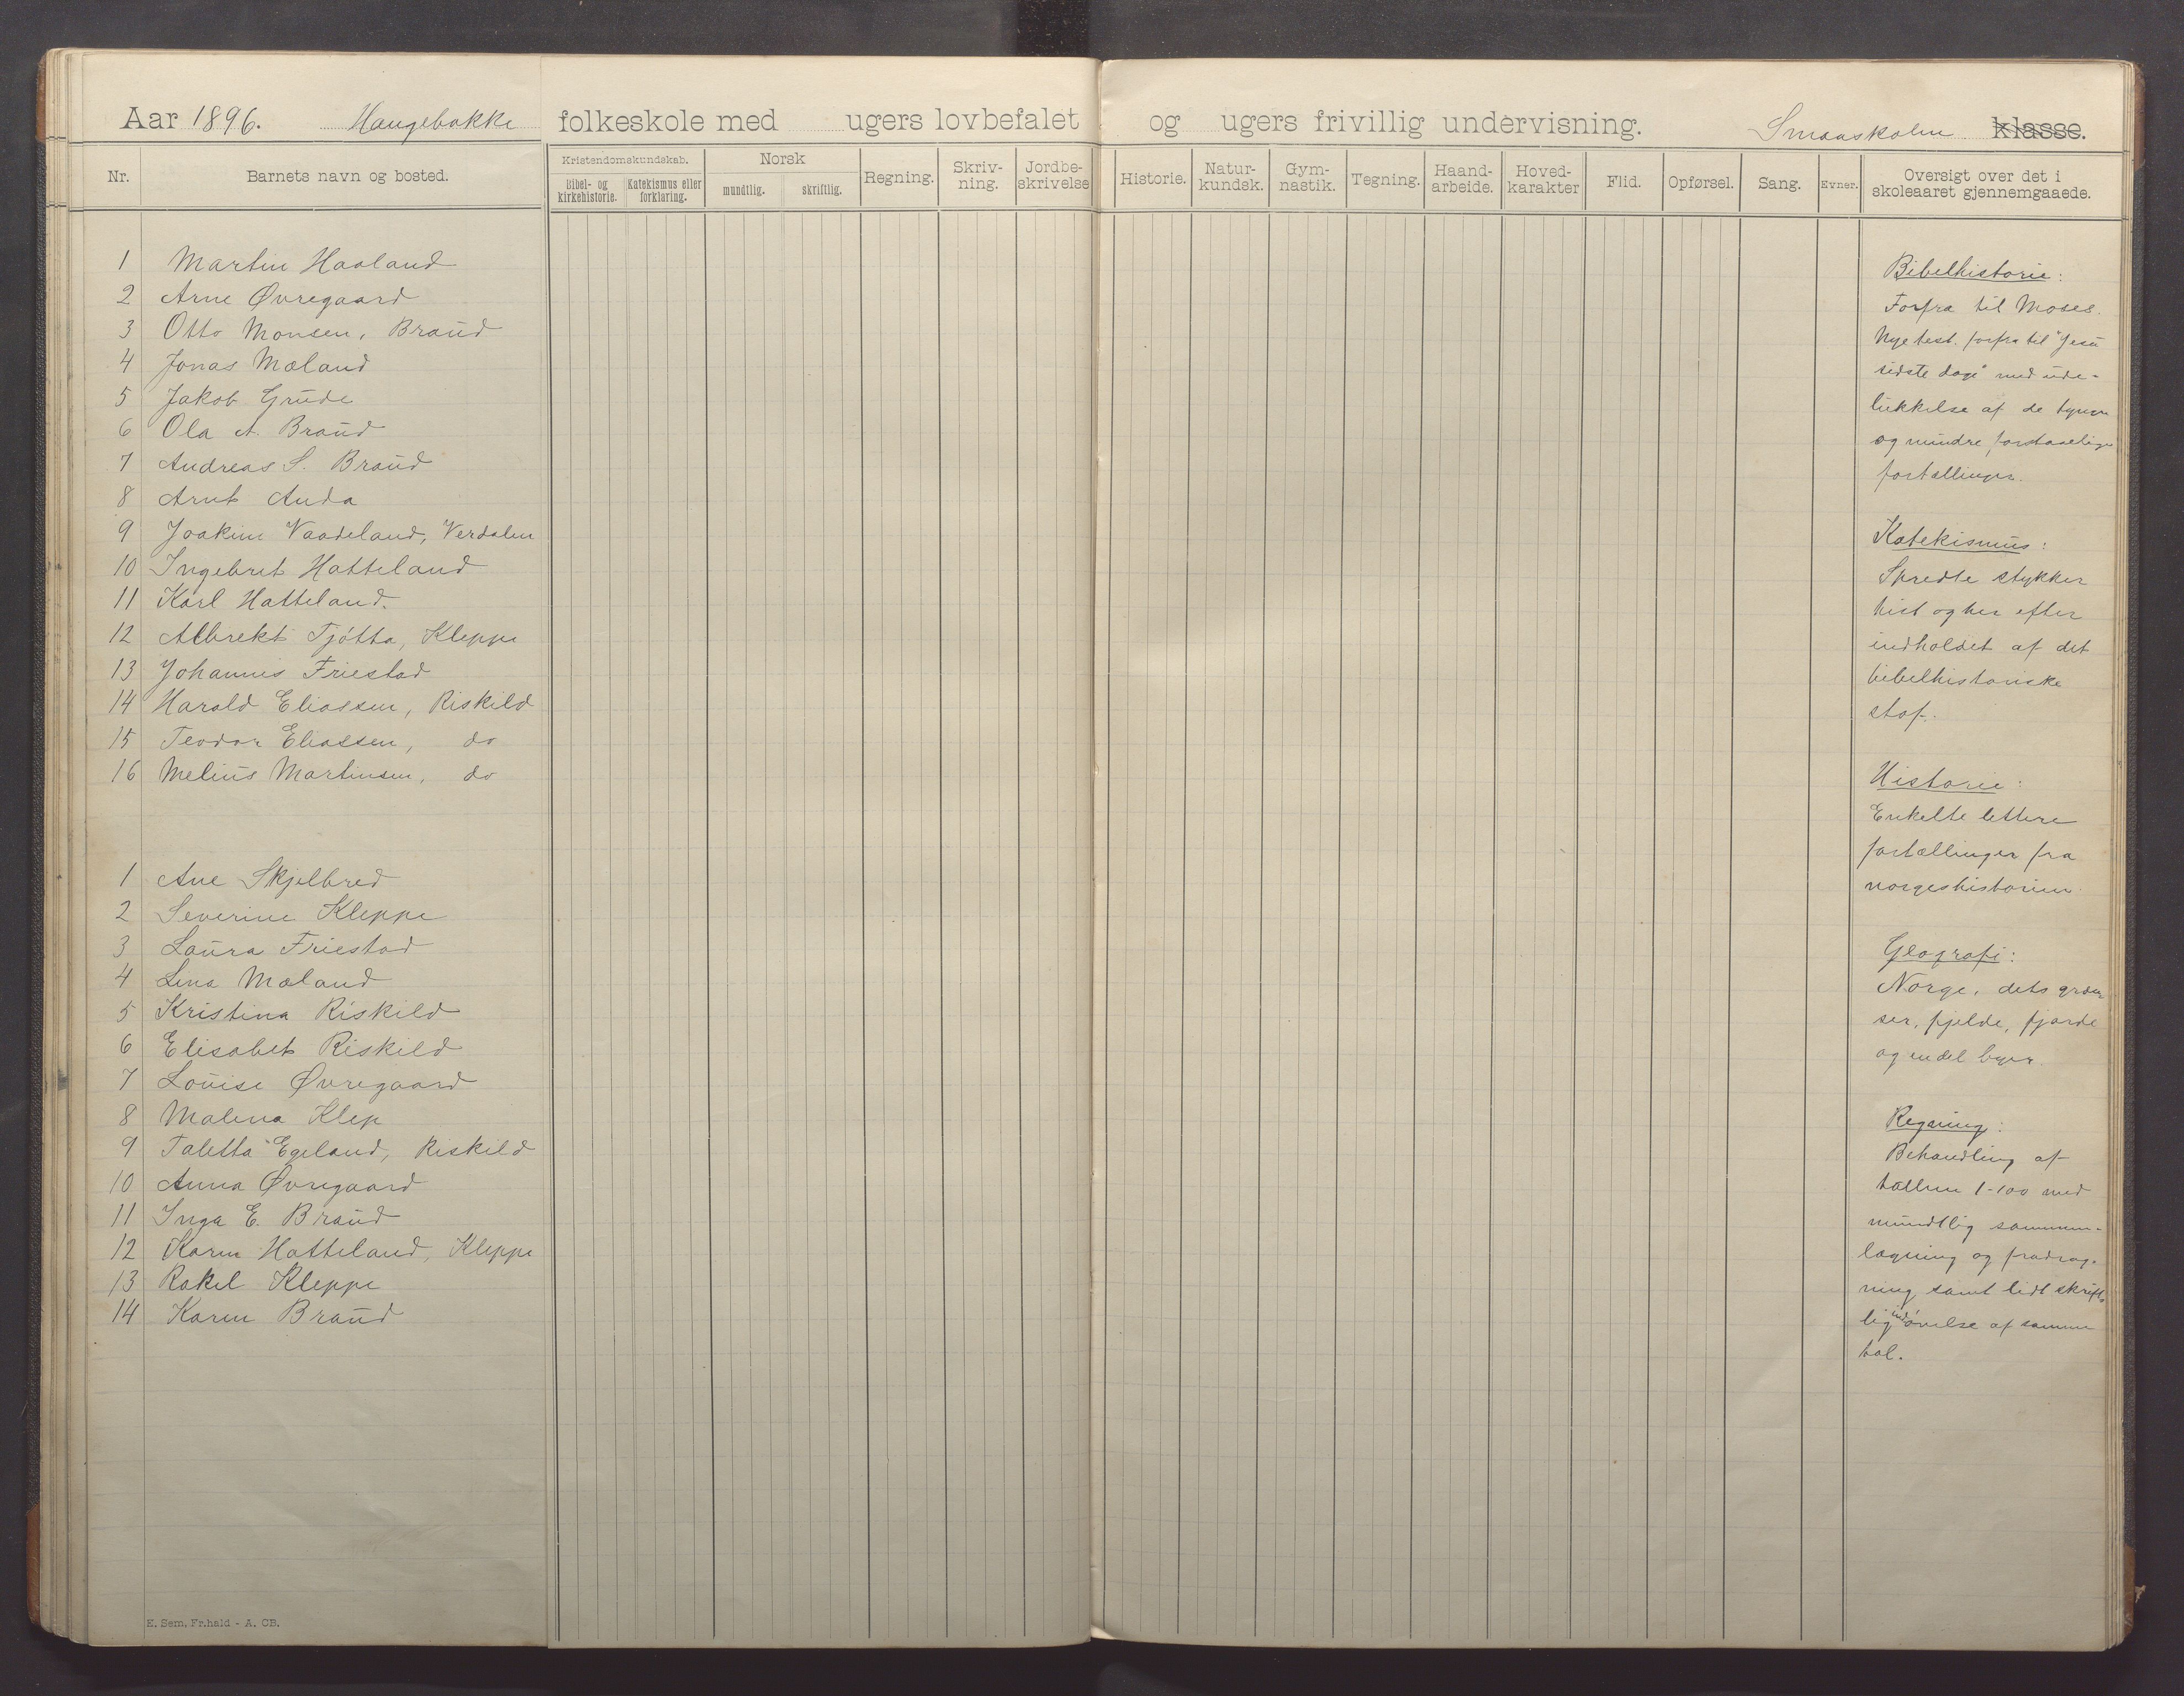 Aar 1896. Haugebakke folkeskole med ugers lovbefalet og ugers frivillig undervisning. Smaaskolen klasse.
Nr.
Barnets navn og bosted.
Kristendomskundskab.
Bibel- og kirkehistorie.
Katekismus eller forklaring.
Norsk
mundtlig.
skriftlig.
Regning.
Skriv-
ning.
Jordbe-
skrivelse
Historie.
Natur-
kundsk.
Gym-
nastik.
Tegning.
Haand-
arbeide.
Hoved-
karakter
Flid.
Opførsel.
Sang.
Evner.
Oversigt over det i
skoleaaret gjennemgaaede.
1 Martin Haaland
2 Arne Øvregaard
3 Otto Monsen, Braud
4 Jonas Mæland
5 Jakob Grude
6 Ola A. Braud
7 Andreas S. Braud
8 Arnt Anda
9 Joakim Vaadeland, Verdalen
10 Ingebret Hatteland
11 Karl Hatteland.
12 Albrekt Tjøtta, Kleppe
13 Johannes Friestad
14 Harald Eliassen, Riskild
15 Teodor Eliassen, do
16 Melius Martinsen, do
1 Ane Skjelbred
2 Severine Kleppe
3 Laura Friestad
4 Lina Mæland
5 Kristina Riskild
6 Elisabet Riskild
7 Louise Øvregaard
8 Malena Klep
9 Taletta Egeland, Riskild
10 Anna Øvregaard
11 Inga E. Braud
12 Karen Hatteland, Kleppe
13 Rakel Kleppe
14 Karen Braud
Bibelhistorie:
Forfra til Moses.
Nye test. forfra til "Jesu
sidste dage" med ude-
lukkelse af de tyngre
og mindre forstaaelige
fortællinger.
Katekismus:
Spredte stykker
hist og her efter
indholdet af det
bibelhistoriske
stof.
Historie:
Enkelte lettere
fortællinger fra
norgeshistorien.
Geografi:
Norge, dets græn
ser, fjelde, fjorde
og en del byer.
Regning:
Behandling af
tallene 1-100 med
mundtlig sammen-
lægning og fradrag-
ning samt lidt skrift-
lig indøvelse af samme
tal.
E. Sem, Fr.hald - A. CB.